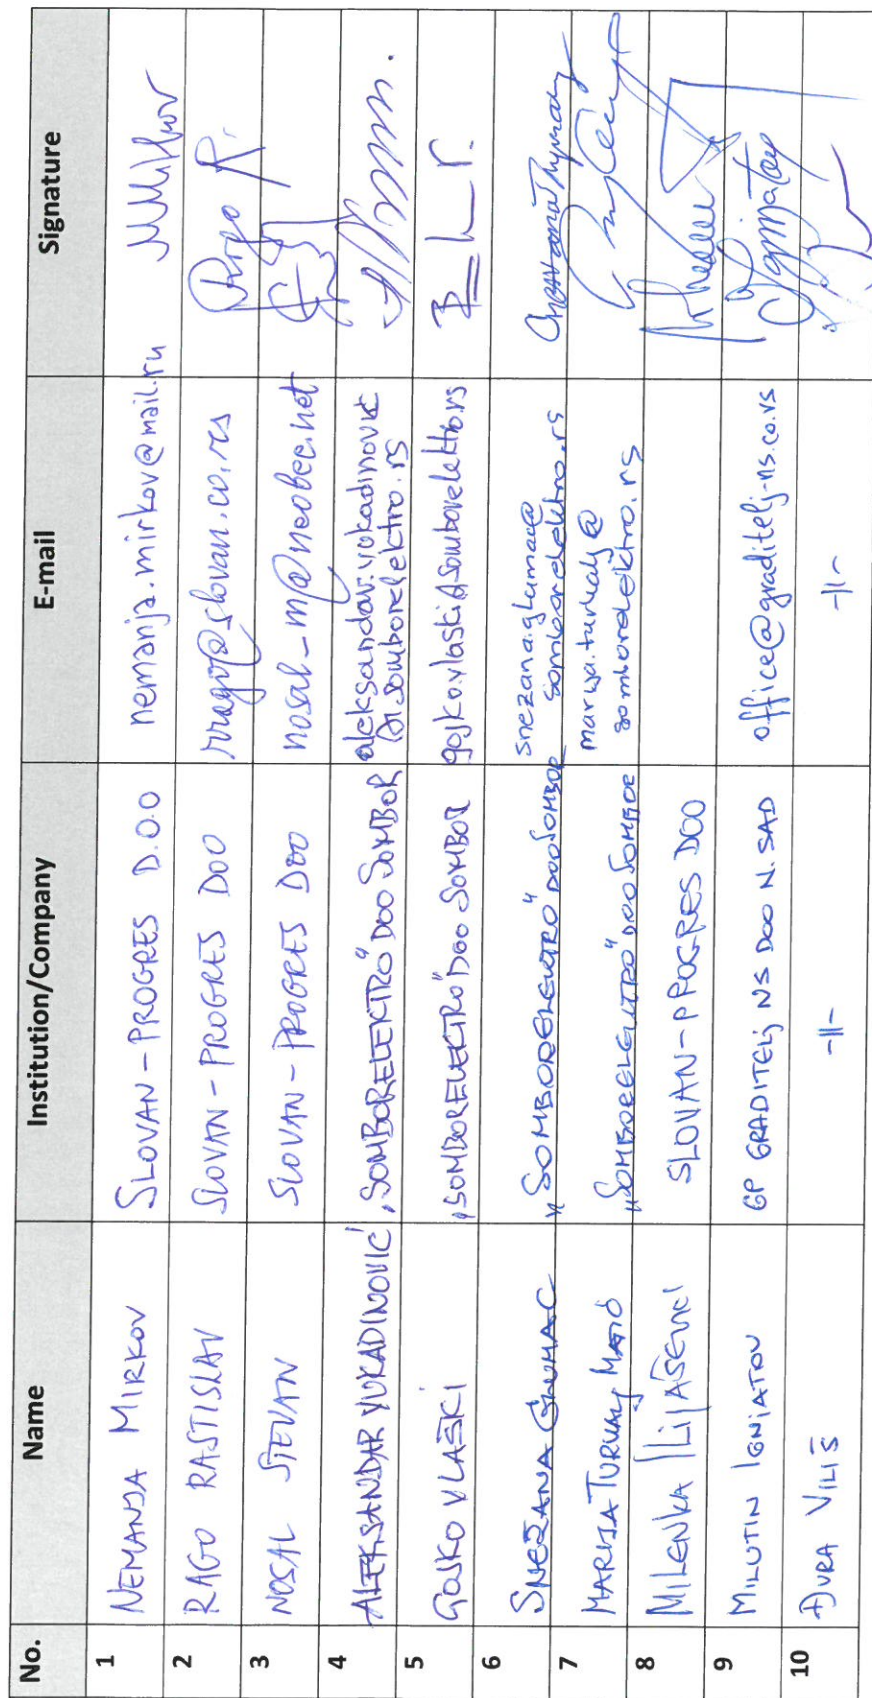 No. Name Institution/Company E-mail Signature
1 NEMANJA MIRKOV SLOVAN-PROGRES D.O.O nemanja.mirkov@mail.ru
2 RAGO RASTISLAV SLOVAN-PROGRES DOO rrago@slovan.co.rs Rago R.
3 NOSAL STEVAN SLOVAN-PROGRES DOO nosal_m@neobee.net
4 ALEKSANDAR VUKADINOVIĆ „SOMBORELEKTRO" DOO SOMBOR aleksandar.vukadinovic
@somborelektro.rs
5 GOJKO VLAŠKI „SOMBORELEKTRO" DOO SOMBOR gojko.vlaski@somborelektro.rs
6 SNEŽANA GLUMAC „SOMBORELEKTRO" DOO SOMBOR snezana.glumac@
somborelektro.rs
7 MARIJA TURKALJ MATIĆ „SOMBORELEKTRO" DOO SOMBOR marija.turkalj@
somborelektro.rs
8 MILENKA ILIJAŠEVIĆ SLOVAN-PROGRES DOO
9 MILUTIN IGNJATOV GP GRADITELJ NS DOO N. SAD office@graditelj-ns.co.rs
10 ĐURA VILIŠ -||- -||-